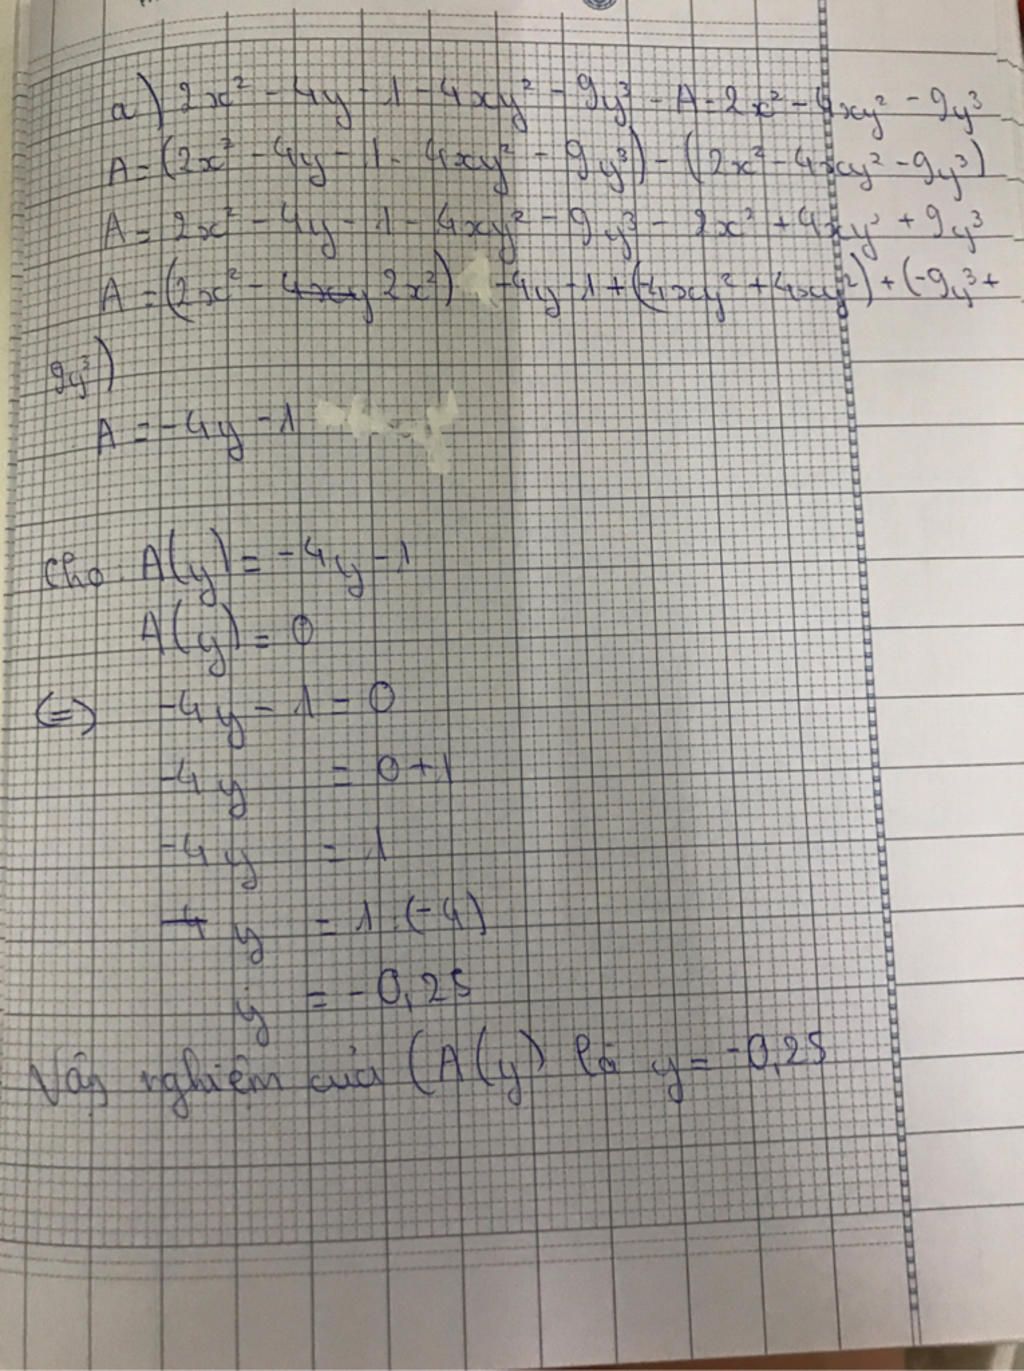 a) 2x² - 4y - 1 - 4xy² - 9y³ - A = 2x² - 4xy² - 9y³
A = (2x² - 4y - 1 - 4xy² - 9y³) - (2x² - 4xy² - 9y³)
A = 2x² - 4y - 1 - 4xy² - 9y³ - 2x² + 4xy² + 9y³
A = (2x² - 2x²) - 4y - 1 + (-4xy² + 4xy²) + (-9y³ +
9y³)
A = -4y - 1
Cho A(y) = -4y - 1
A(y) = 0
(=) -4y - 1 = 0
-4y = 0 + 1
-4y = 1
y = 1 : (-4)
y = -0,25
Vậy nghiệm của (A(y) là y = -0,25